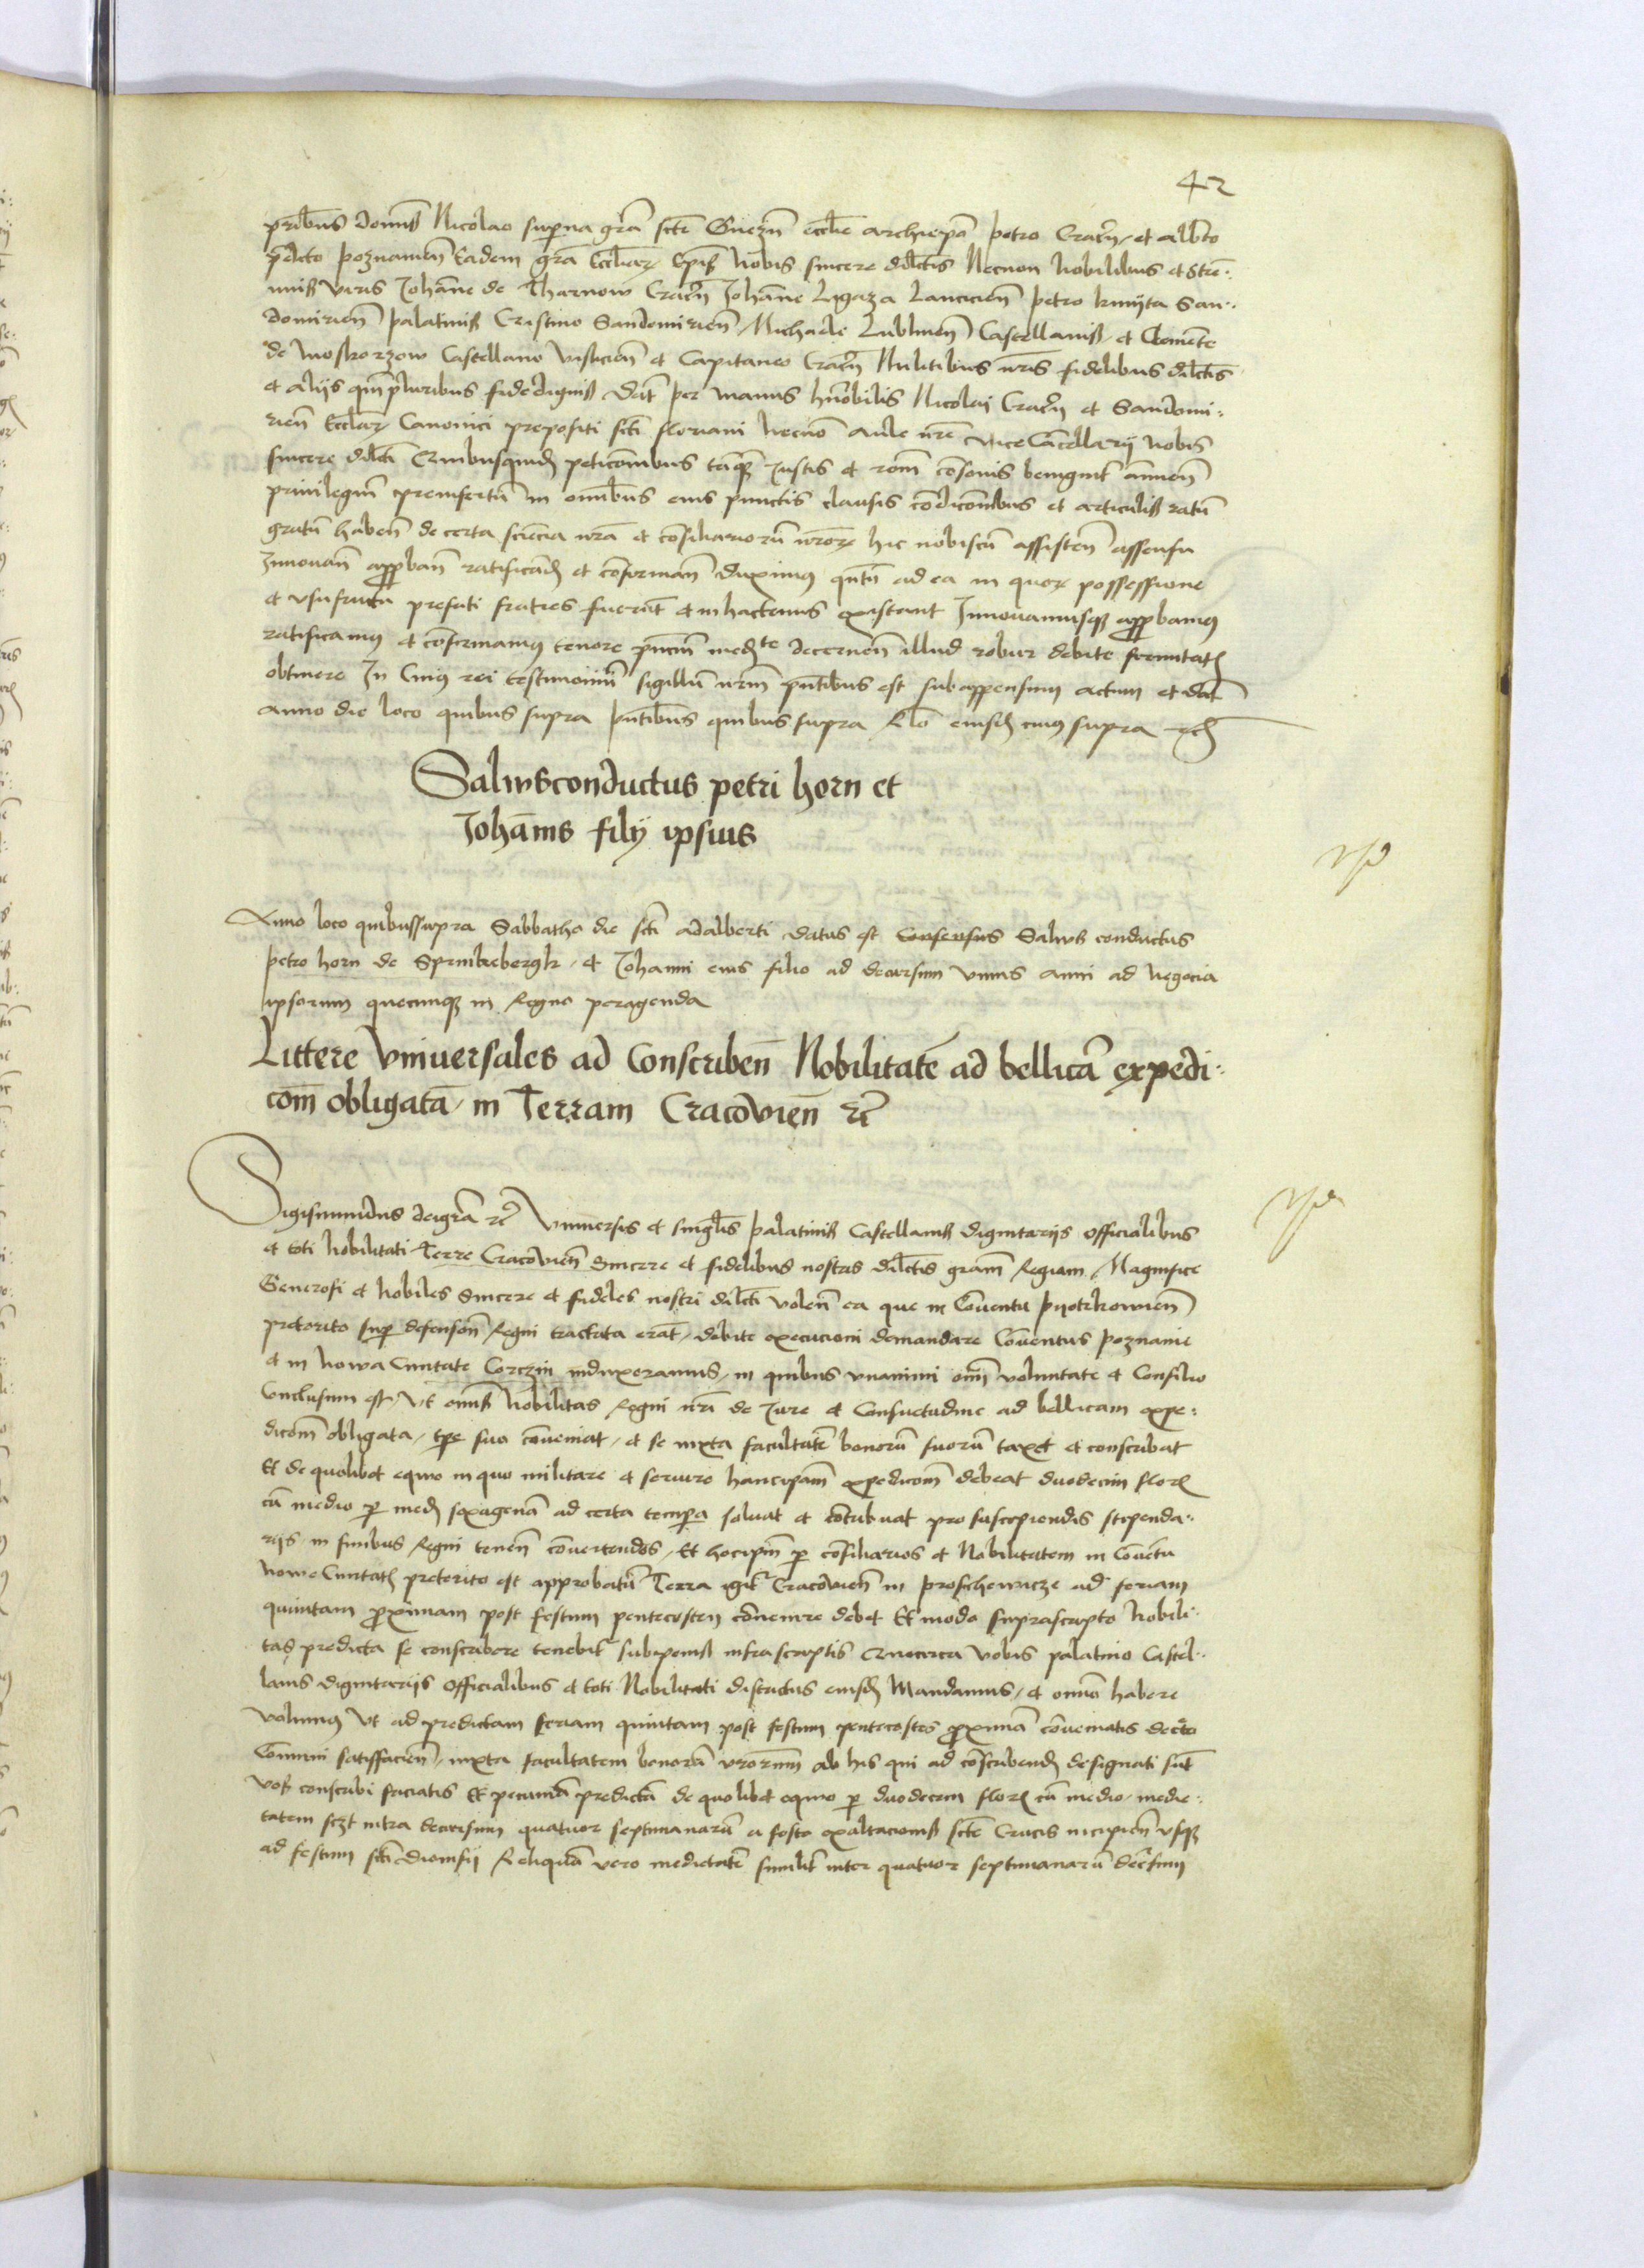 42
pribus dominis Nicolao superna gra scte Gnezn ecclie archiepo petro Cracn et albto
pdicto poznanien Eadem gra Eccliarum Epis nobis sincere dilctis Necnon Nobilibus et Stre:
nuis viris Johanne de Tharnow Cracn Johanne Ligaza Lancicien petro kmyta San:
domirien palatinis Cristino Sandomirien Michaele Lublinen Castellanis et Clemente
de moskorzow Castellano vislicien et Capitaneo Cracn Militibus nris fidelibus dilctis
et alijs qmpluribus fidedignis Dat per manus honobilis Nicolai Cracn et Sandomi:
rien Eccliarum Canonici prepositi scti floriani necno aule nre vice Cancellarij nobis
sincere dilcti Quibusquidem peticonibus tamquam Justis et roni consonis benignit annuen
privilegium preinsertum in omnibus eius punctis clausis condiconibus et articulis ratum
gratum haben de certa sciencia nra et consiliariorum nrorum hic nobiscum assisten assensu
Innouan approban ratificand et conforman duximus qntum ad ea in quorum possessione
et vsufructu prefati fratres fuerunt et in hactenus existunt Innouamusque approbamus
ratificamus et confirmamus tenore pncium medte decernen illud robur debite firmitatis
obtinere In Cuius rei testimonium sigillum nrm pntibus est subappensum actum et dat
anno die loco quibus supra pntibus quibus supra Rlo eiusdem cuius supra etc
Salvusconductus petri horn et
Johanis filij ipsius
Anno loco quibussupra Sabbatho die scti adalberti datus est Consensus Salvus conductus
petro horn de Sprinkebergk et Johanni eius filio ad decursum vnius anni ad negocia
ipsorum quecunque in Regno peragenda
Littere vniuersales ad Conscriben Nobilitate ad bellica expedi:
com obligata in Terram Cracovien etc
Sigismundus dei gra etc Vniuersis et singlis palatinis Castellanis dignitarijs officialibus
et toti Nobilitati Terre Cracovien Sincere et fidelibus nostris dilctis gram Regiam Magnifice
Generosi et Nobiles Sincere et fideles nostri dilcti volen ea que in Conuentu pyotrkowien
preterito sup defension Regni tractata erat debite execucioni demandare Conuentus poznanie
et in Nowa Ciuitate Corczin indixeramus in quibus vnanimi omi voluntate et Consilio
Conclusum est Vt omis Nobilitas Regni nri de Jure et Consuetudine ad bellicam expe:
dicom obligata tpe suo conueniat et se iuxta facultate bonoru suoru taxet et conscribat
Et de quolibet equo in quo militare et seruire hancipsam expedicom debeat duodecim flor
cu medio p med sexagena ad certa tempora soluat et contribuat pro suscipiendis stipenda:
rijs in finibus Regni tenen conuertendos Et hocipm p consiliarios et Nobilitatem in Conuetu
nowe Ciuitatis preterito est approbatu Terra igit Cracovien in proschewicze ad feriam
quintam proximam post festum pentecosten conuenire debet Et modo suprascripto Nobili:
tas predicta se conscribere tenebit subpenis infrascriptis Quocirca vobis palatino Castel:
lanis dignitarijs officialibus et toti Nobilitati districtus eiusd Mandamus et omino habere
Volumus Vt ad predictam feriam quintam post festum pentecostes proxima conueniatis decto
Comuni satisfacien iuxta facultatem bonoru vrorum ab his qui ad conscribendu designati sut
vos conscribi faciatis Et pecunia predicta de quolibet equo p duodecem flor cu medio medie:
tatem sczt intra decursum quatuor septimanaru a festo exaltacionis scte Crucis incipien vsque
ad festum scti dionisij Reliqua vero medietate similit inter quatuor septimanaru decursum